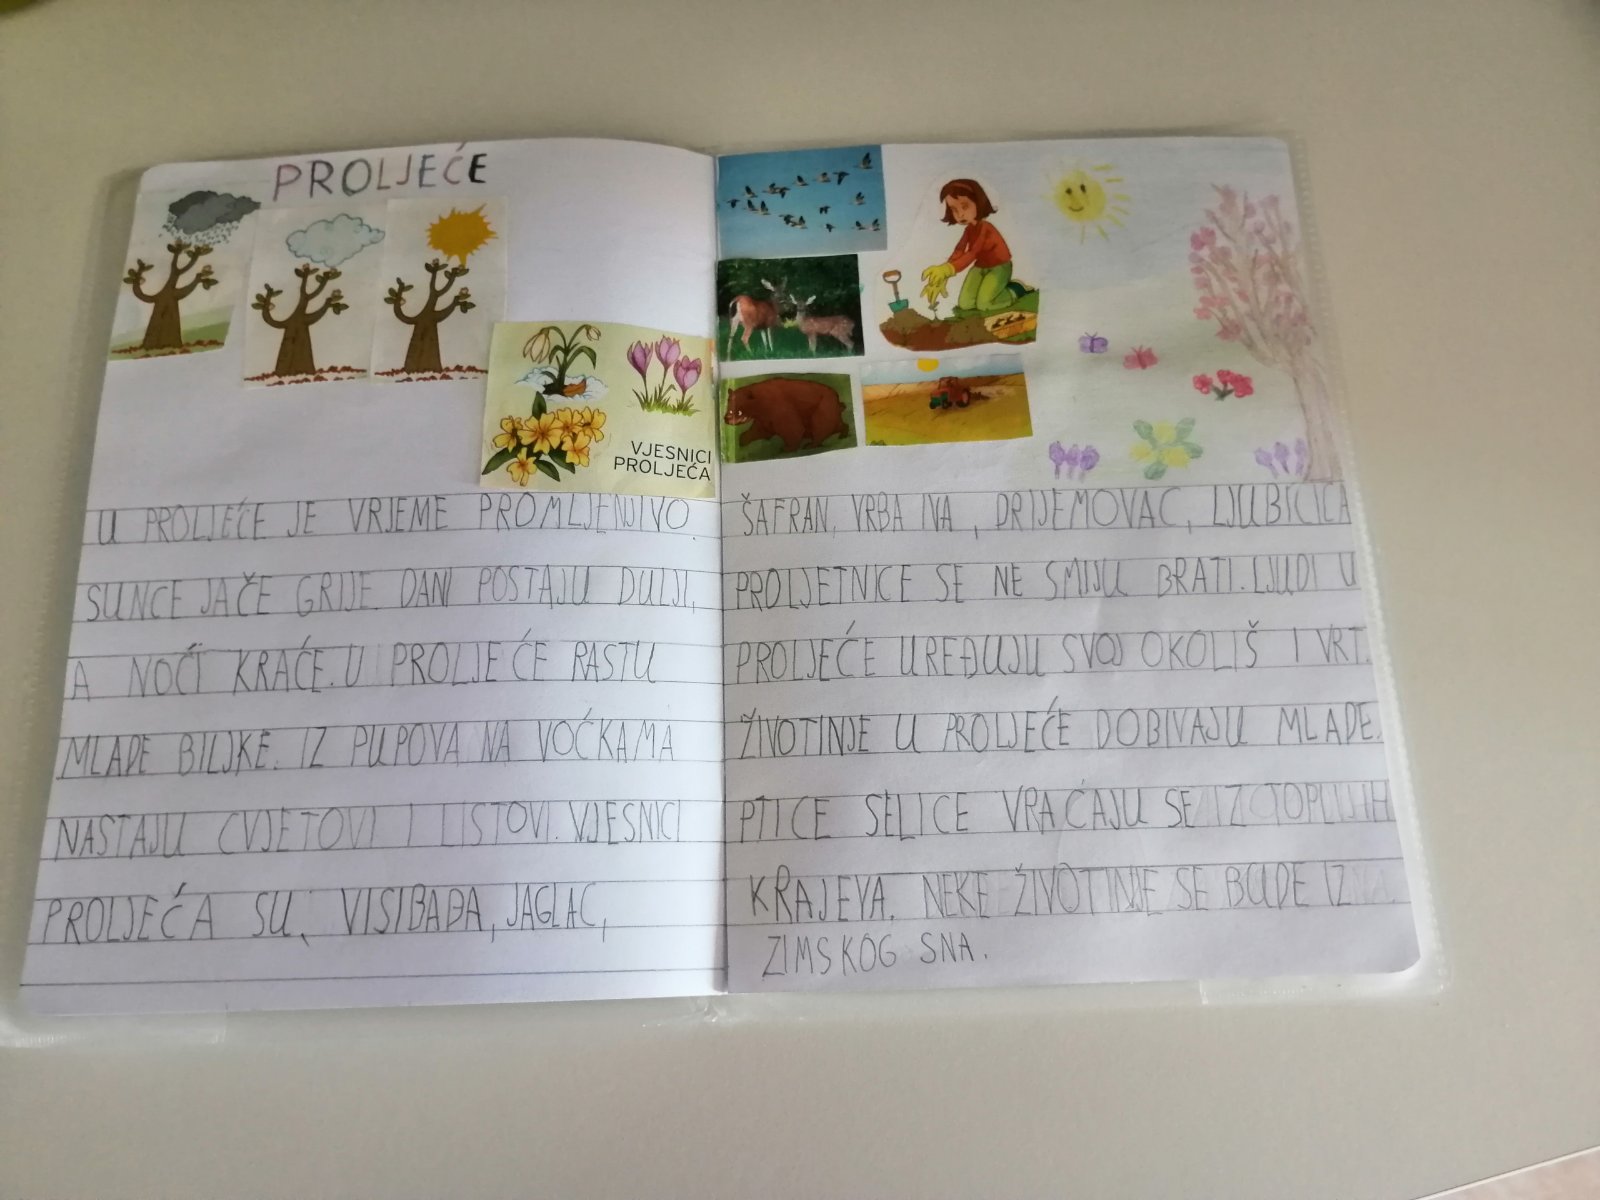 PROLJEĆE
VJESNICI
PROLJEĆA
U PROLJEĆE JE VRIJEME PROMLJENJIVO.
SUNCE JAČE GRIJE. DANI POSTAJU DULJI,
A NOĆI KRAĆE. U PROLJEĆE RASTU
MLADE BILJKE. IZ PUPOVA NA VOĆKAMA
NASTAJU CVJETOVI I LISTOVI. VJESNICI
PROLJEĆA SU: VISIBABA, JAGLAC,
ŠAFRAN, VRBA IVA, DRIJEMOVAC, LJUBICICA
PROLJETNICE SE NE SMIJU BRATI. LJUDI U
PROLJEĆE UREĐUJU SVOJ OKOLIŠ I VRT.
ŽIVOTINJE U PROLJEĆE DOBIVAJU MLADE.
PTICE SELICE VRAĆAJU SE IZ TOPLIJIH
KRAJEVA. NEKE ŽIVOTINJE SE BUDE IZ
ZIMSKOG SNA.